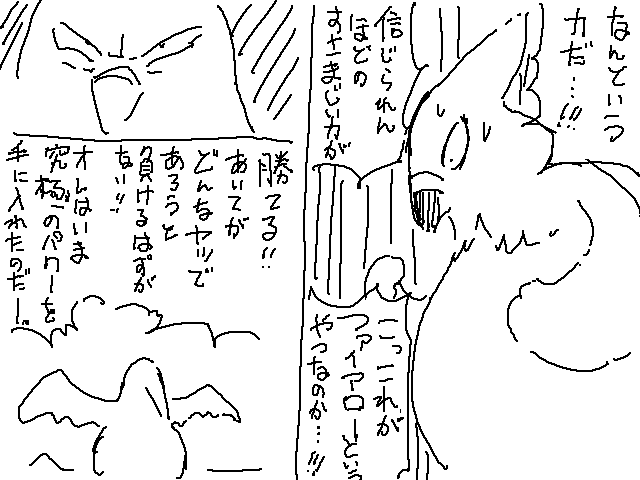 なんという
力だ…!!!
信じられん
ほどの
すさまじい力が
こっこれが
ファイアローという
やつなのか…!!!
勝てる!!
あいてが
どんなヤツで
あろうと
負けるはずが
ない!!
オレはいま
究極のパワーを
手に入れたのだー!!